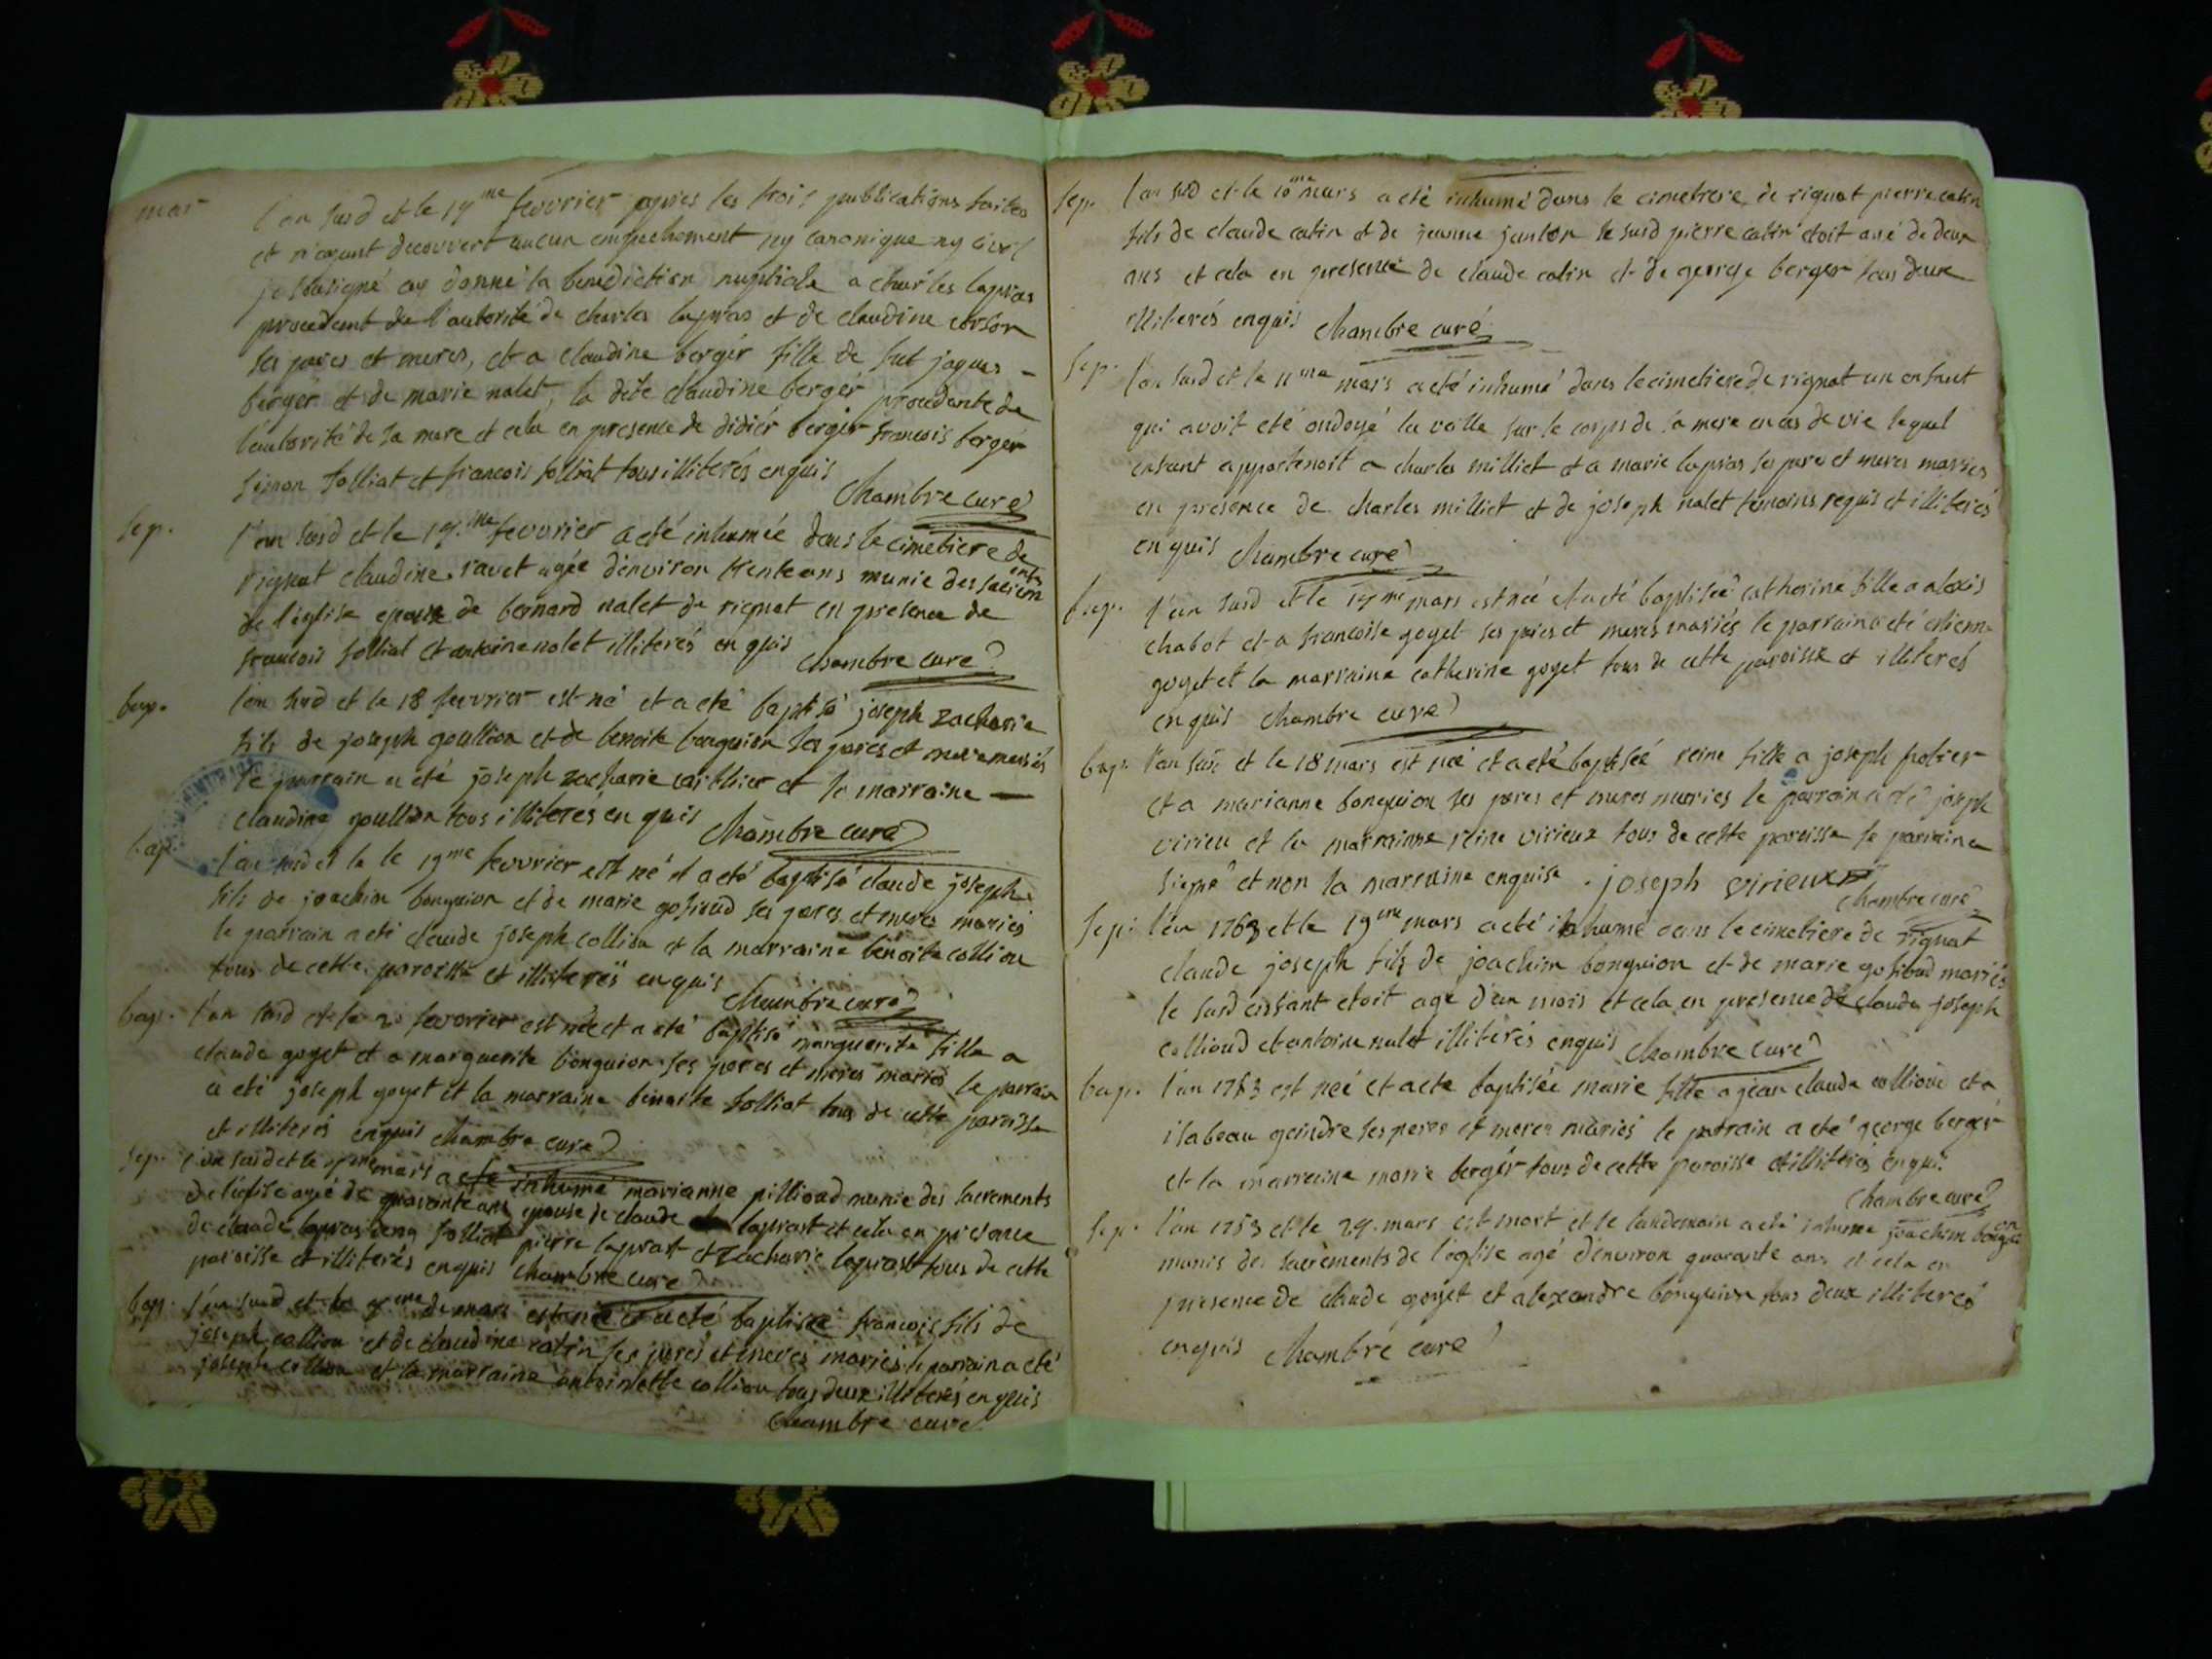 mar
l'an susd et le 14me fevvrier apres les trois publications faites
et n'ayant decouvert aucun empechement ny canonique ny civil
je soussigné ay donné la benediction nuptiale a charles lapras
procedant de l'autorité de charles lapras et de claudine
ses peres et meres, et a claudine bergér fille de fut jaques
bergér et de marie nalet, la dite claudine bergér procedante de
l'autorité de sa mere et cela en presence de didiér bergér francois bergér
simon folliat et francois folliat tous illiterés enquis
Chambre curé
sep.
l'an susd et le fevvrier a eté inhumée dans le cimetiere de
rignat claudine ravet agée d'environ trente ans munie des sacrem
ents
de l'église epouse de bernard nalet de rignat en presence de
francois folliat et antoine nalet illiterés enquis
Chambre curé
bap.
l'an susd et le 18 fevvrier est né et a eté baptisé joseph zacharie
fils de joseph goullion et de benoite bonguion ses peres et mere mariés
le parrain a eté joseph zacharie et la marraine
claudine goullion tous illiterés enquis
Chambre curé
bap.
l'an susd et le le 19me fevvrier est né et a eté baptisé claude joseph
fils de joachim bonguion et de marie gosioud ses peres et meres mariés
le parrain a eté claude joseph colliou et la marraine benoite colliou
tous de cette paroisse et illiterés enquis
Chambre curé
bap.
l'an susd et le 20 fevvrier est née et a eté baptisé marguerite fille a
claude goyet et a marguerite bonguion ses peres et meres mariés le parrain
a eté joseph goyet et la marraine benoite folliat tous de cette paroisse
et illiterés enquis Chambre curé
sep.
l'an susd et le mars a eté inhumé marianne pillioud munie des sacrements
de léglise agé de quarante ans epouse de claude laprast et cela en presence
de claude lapras folliat pierre laprast et zacharie laprast tous de cette
paroisse et illiterés enquis Chambre curé
bap.
l'an susd et le de mars est né et a eté baptisé francois fils de
joseph colliou et de claudine catin ses peres et meres mariés le parrain a eté
colliou et la marraine antoinette colliou tous deux illiterés enquis
Chambre curé
sep.
l'an susd et le 10me mars a eté inhumé dans le cimetiere de rignat pierre catin
fils de claude catin et de jeanne janton le susd pierre catin etoit agé de deux
ans et cela en presence de claude catin et de george berger tous deux
illiterés enquis Chambre curé
sep.
l'an susd et le 11me mars a eté inhumé dans le cimetiere de rignat un enfant
qui avoit eté ondoyé la veille sur le corps de sa mere en cas de vie lequel
enfant appartenoit a charles milliet et a marie lapras ses peres et meres mariés
en presence de charles milliet et de joseph nalet temoins requis et illiterés
enquis Chambre curé
bap.
l'an susd et le 14me mars est née et a eté baptisée catherine fille a alexis
chabot et a francoise goyet ses peres et meres mariés le parrain a eté etienne
goyet et la marraine catherine goyet tous de cette paroisse et illiterés
enquis Chambre curé
bap.
l'an susd et le 18 mars est née et a eté baptisée reine fille a joseph
et a marianne bonguion ses peres et meres mariés le parrain a eté joseph
virieu et la marrainne reine virieux tous de cette paroisse le parrain a
signé et non la marraine enquise. joseph virieux
Chambre curé
sep.
l'an 1763 et le 19me mars a eté inhumé dans le cimetiere de rignat
claude joseph fils de joachim bonguion et de marie gosioud mariés
le susd enfant etoit agé d'un mois et cela en presence de claude joseph
collioud et antoine nalet illiterés enquis Chambre curé
bap.
l'an 1763 est née et a eté baptisée marie fille a jean claude collioud et a
isabeau geindre ses peres et meres mariés le parrain a eté george bergér
et la marraine marie bergér tous de cette paroisse et illiterés enquis
Chambre curé
sep.
l'an 1763 et le 24. mars est mort et le landemain a eté inhumé joachim bongui
on
munis des sacrements de l'église agé d'environ quarante ans et cela en
presence de claude goyet et alexandre bonguion tous deux illiterés
enquis Chambre curé